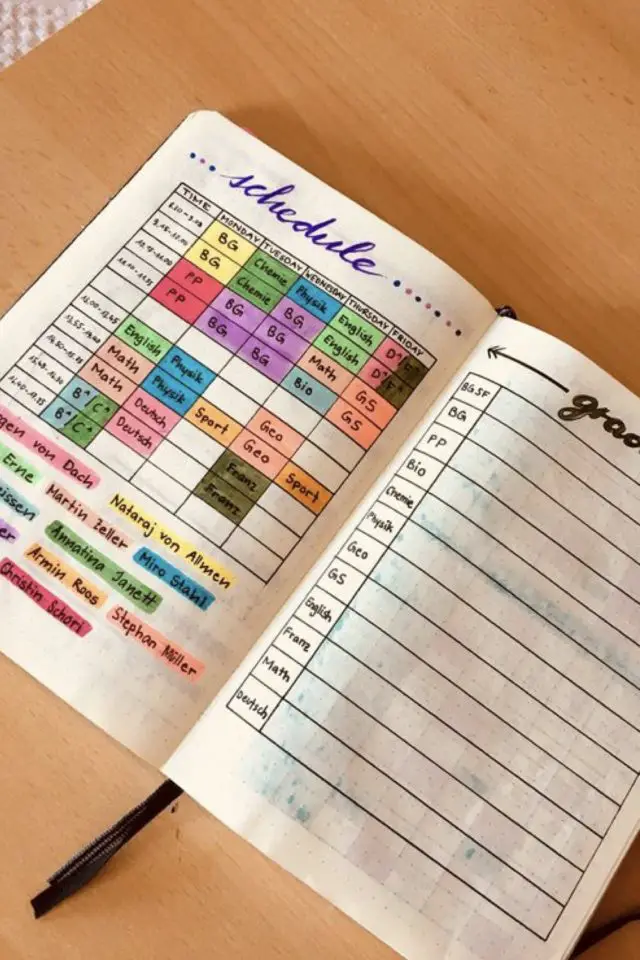 schedule
TIME MONDAY TUESDAY WEDNESDAY THURSDAY FRIDAY
BG Chemie Physik English D^ F^
BG Chemie BG English D^ F^
PP BG BG Math GS
PP BG BG Bio GS
12.00-12.45
English Physik Geo
Math Physik Geo
Math Deutsch Sport Franz Sport
B^ C^ Deutsch Franz
B^ C^
von Dach
Erne
Martin Zeller
Nataraj von Allmen
Annatina Janett
Miro Stahl
Armin Roos
Christin Schorl
Stephan Müller
BGSF
BG
PP
Bio
Chemie
Physik
Geo
GS
English
Franz
Math
Deutsch